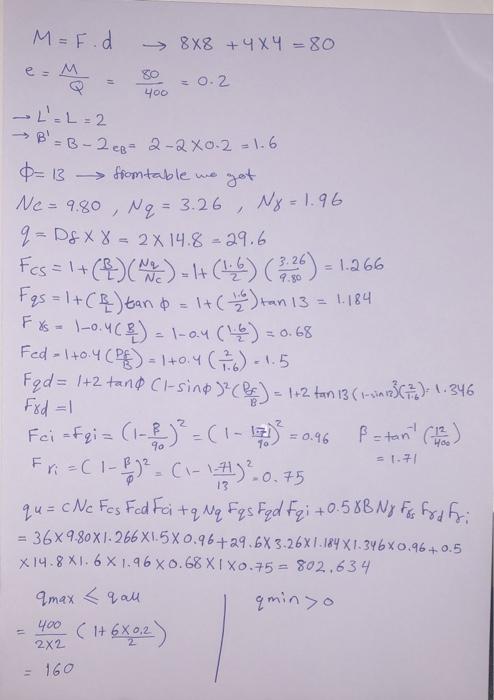 M = F.d → 8×8 + 4×4 = 80
e = M/Q = 80/400 = 0.2
→ L' = L = 2
→ B' = B - 2eB = 2-2×0.2 = 1.6
ϕ = 13 → from table we get
Nc = 9.80 , Nq = 3.26 , Nγ = 1.96
q = Df × γ = 2×14.8 = 29.6
Fcs = 1+(B/L)(Nq/Nc) = 1+(1.6/2)(3.26/9.80) = 1.266
Fqs = 1+(B/L)tan ϕ = 1+(1.6/2)tan 13 = 1.184
Fγs = 1-0.4(B/L) = 1-0.4(1.6/2) = 0.68
Fcd = 1+0.4(Df/B) = 1+0.4(2/1.6) = 1.5
Fqd = 1+2 tanϕ (1-sinϕ)²(Df/B) = 1+2 tan13(1-sin13)²(2/1.6) = 1.346
Fγd = 1
Fci = Fqi = (1-β/90)² = (1-1.71/90)² = 0.96 β = tan⁻¹(12/400)
= 1.71
Fγi = (1-β/ϕ)² = (1-1.71/13)² = 0.75
qu = cNc Fcs Fcd Fci + q Nq Fqs Fqd Fqi + 0.5γB Nγ Fγs Fγd Fγi
= 36×9.80×1.266×1.5×0.96+29.6×3.26×1.184×1.346×0.96+0.5
×14.8×1.6×1.96×0.68×1×0.75 = 802.634
qmax ≤ qall
= 400/2×2 (1+6×0.2/2)
= 160
qmin > 0